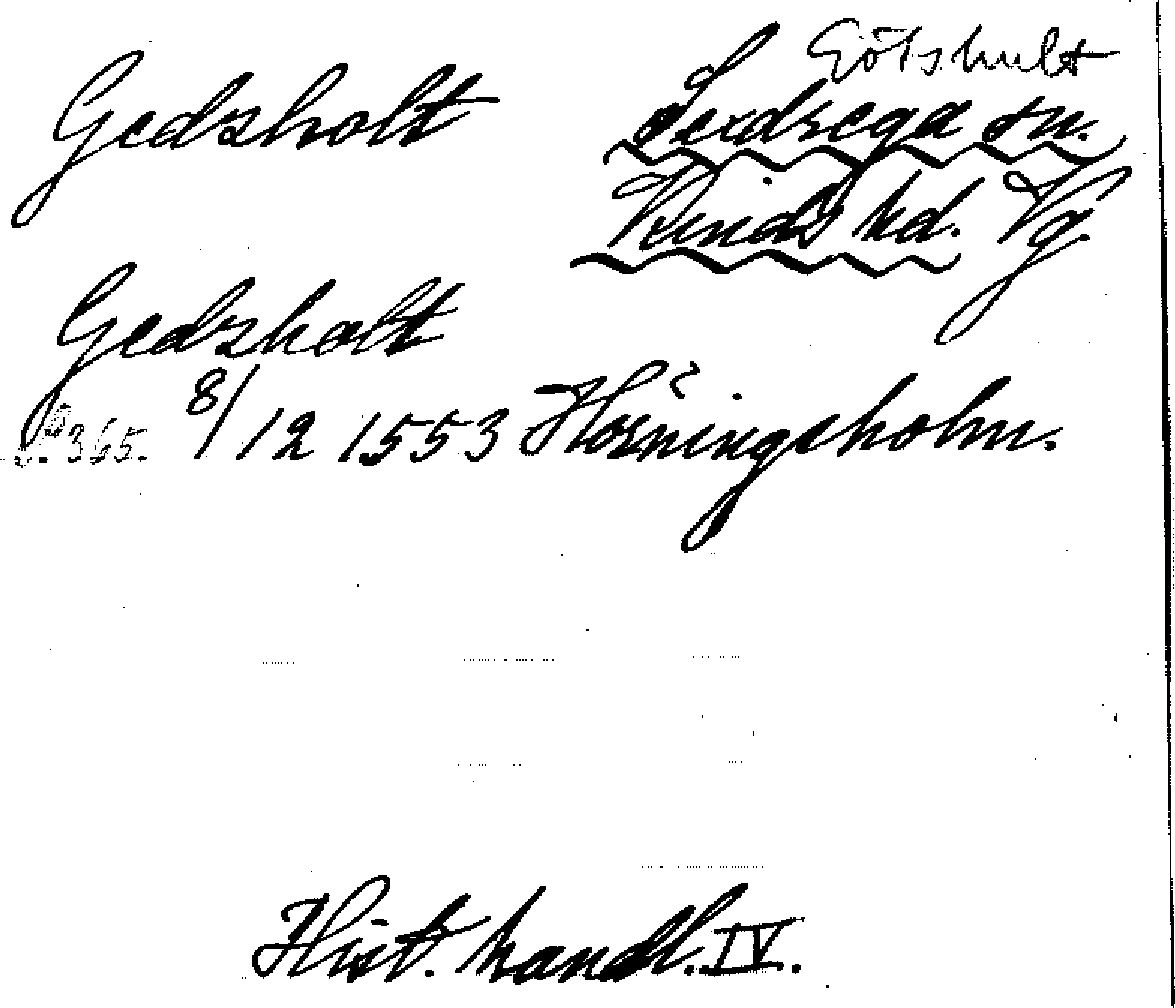 Götshult
Gedsholt Sexdrega sn.
Kinds hd. Vg.
Gedsholt
s. 365. 8/12 1553 Hörningsholm.
Hist. handl. IV.